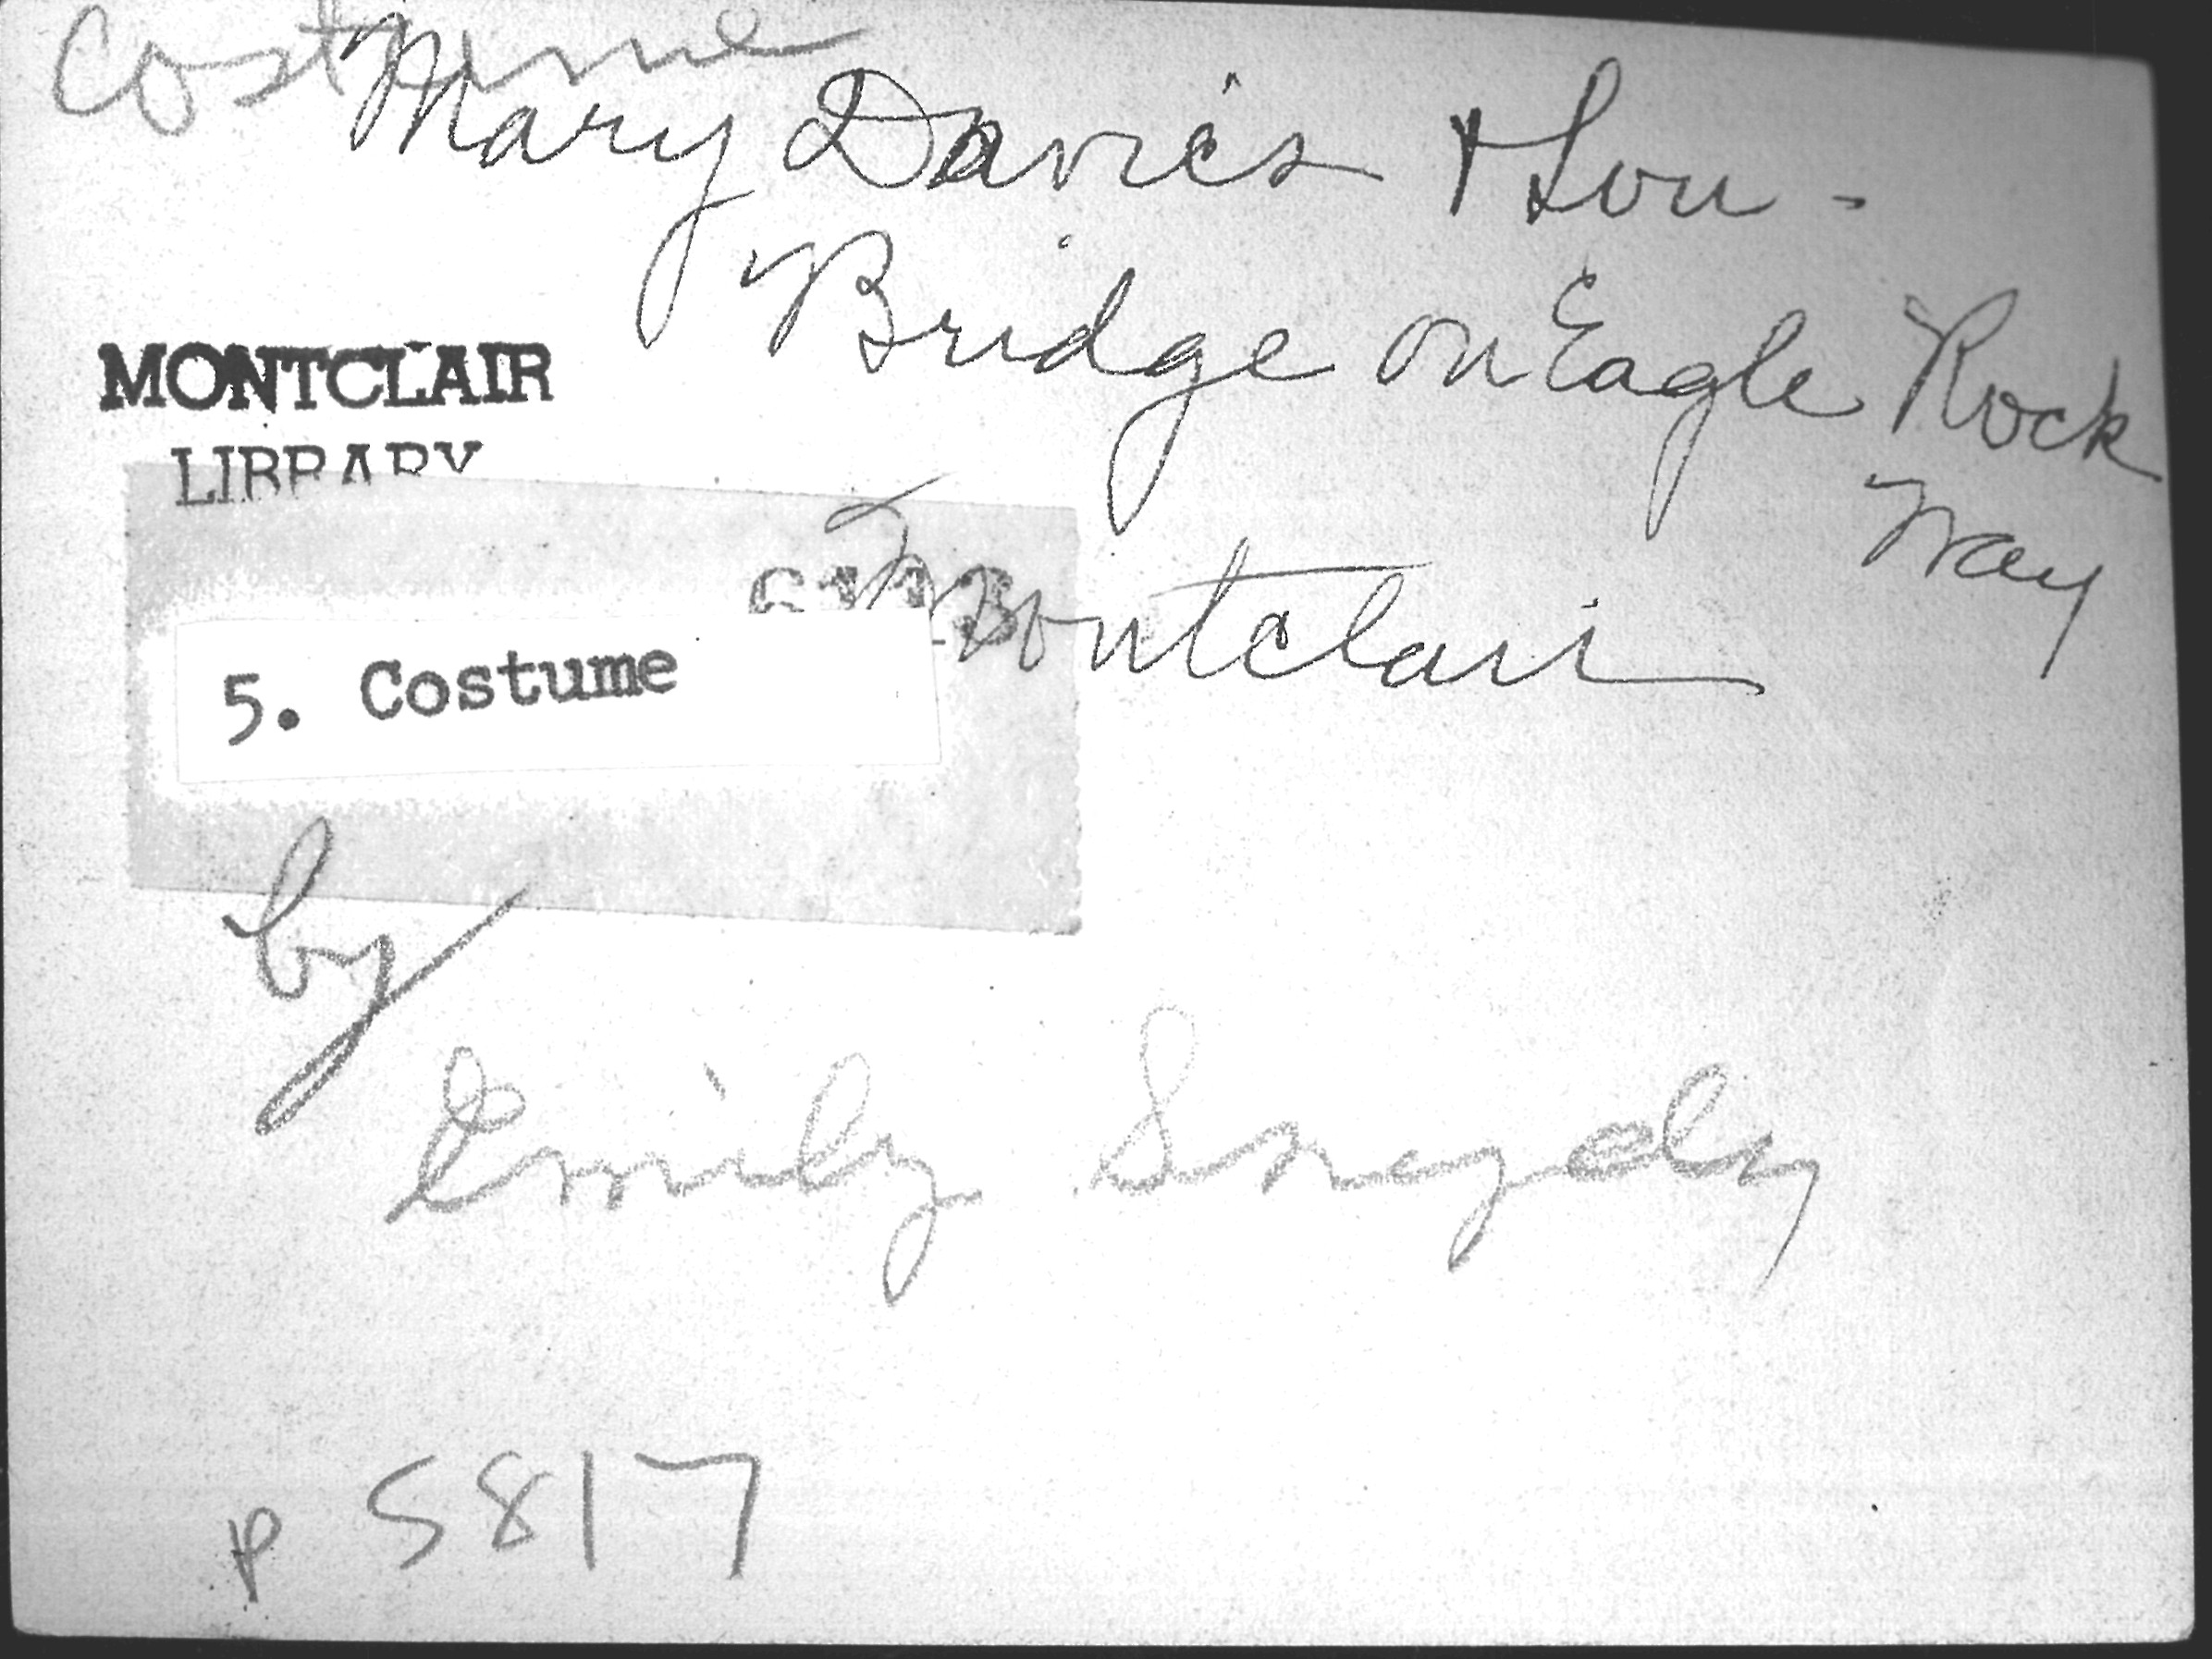 Costume
Mary Davies + Lou -
Bridge on Eagle Rock
Way
MONTCLAIR
LIBRARY
Montclair
5. Costume
by
Emily
p 5817